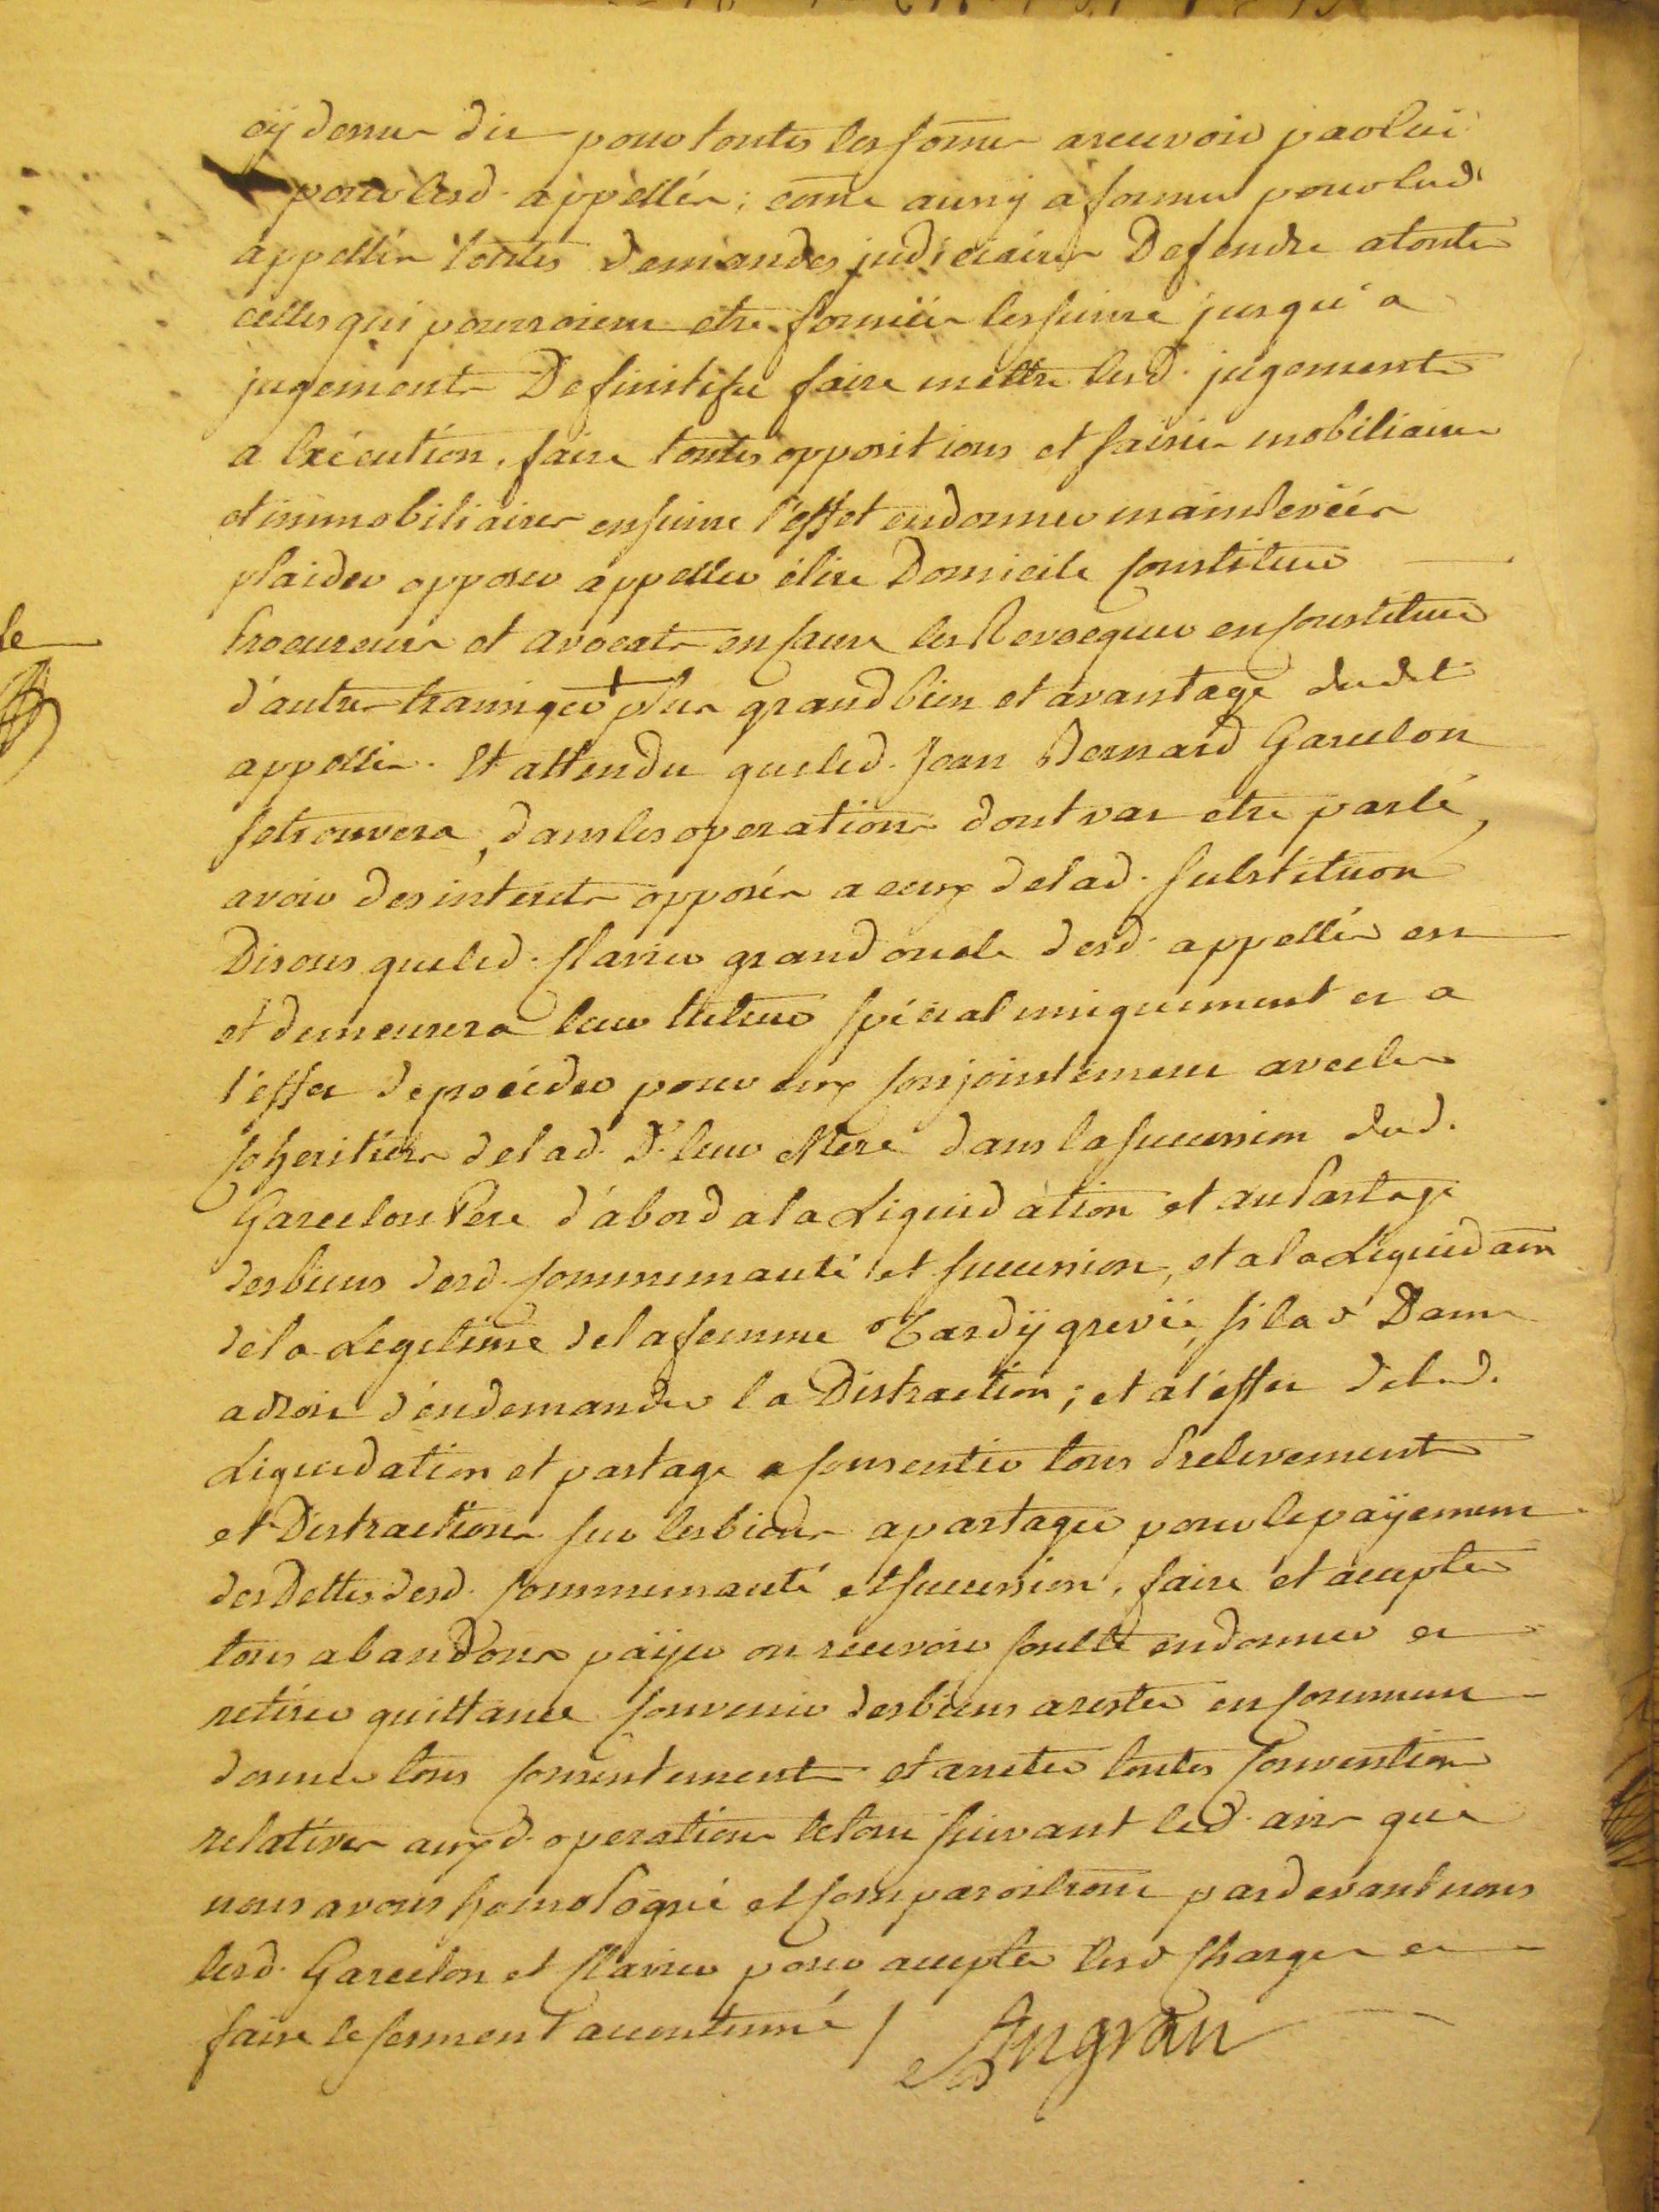 cy dessus dit pour toutes les sommes a recevoir par lui
pour lesd. appellés; come aussy a former pour lesd.
appellés toutes demandes judiciaires Defendre a toutes
celles qui pourroient etre formées les suivre jusqu'a
jugements Definitifs faire mettre lesd. jugements
a Execution, faire toutes oppositions et saisies mobiliaires
et immobiliaires en suivre l'effet en donner mainlevées
plaider opposer appeller élire Domicile Constituer
Procureurs et avocats en Cause les Revocquer en Constituer
d'autres transiger + plus grand bien et avantage dudt
appellés. Et attendu que led. Jean Bernard Garcelon
se trouvera, dans les operations dont va etre parlé,
avoir des interets opposés a ceux de lad. Substituon
Disons que led. Clavier grand oncle desd. appellés est
et demeurera leur tuteur spécial uniquement et a
l'effet de procéder pour eux Conjointement avec les
Coheritiers de lad. De. leur Mere dans la succession dud.
Garcelon Pere d'abord a la Liquidation et au Partage
des biens desd. Communauté et succession, et a la Liquidaon
de la Legitime de la femme Tardÿ grevée, si lad Dame
a droit d'en demander la Distraction; et a l'effet de lad.
Liquidation et partage a Consentir tous Prelevements
et Distractions sur les biens a partager pour le payement
des Dettes desd. Communauté et succession, faire et accepter
tous abandons païer ou recevoir soulte en donner et
retirer quittance Convenir des biens a rester en Commun
donner tous Consentements et arreter toutes Conventions
relatives auxd. operations le tout suivant led. avis que
nous avons homologué et Comparoitront pardevant nous
lesd. Garcelon et Clavier pour accepter lesd Charges et
faire le serment accoutumé / Angran
le